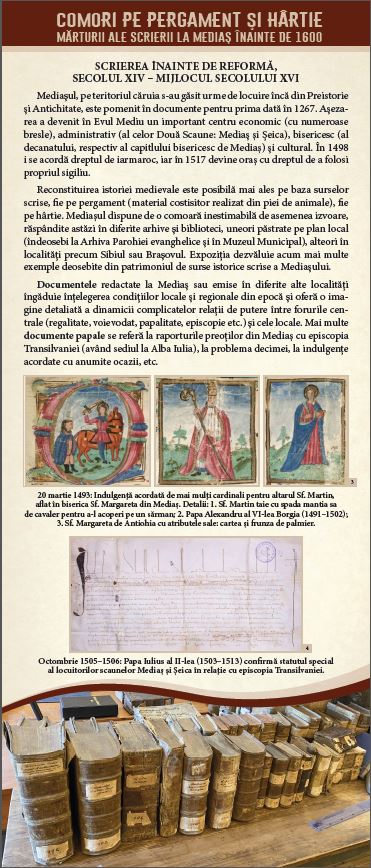 COMORI PE PERGAMENT ȘI HÂRTIE
MĂRTURII ALE SCRIERII LA MEDIAȘ ÎNAINTE DE 1600
SCRIEREA ÎNAINTE DE REFORMĂ,
SECOLUL XIV – MIJLOCUL SECOLULUI XVI
Mediașul, pe teritoriul căruia s-au găsit urme de locuire încă din Preistorie
și Antichitate, este pomenit în documente pentru prima dată în 1267. Așeza-
rea a devenit în Evul Mediu un important centru economic (cu numeroase
bresle), administrativ (al celor Două Scaune: Mediaș și Șeica), bisericesc (al
decanatului, respectiv al capitlului bisericesc de Mediaș) și cultural. În 1498
i se acordă dreptul de iarmaroc, iar în 1517 devine oraș cu dreptul de a folosi
propriul sigiliu.
Reconstituirea istoriei medievale este posibilă mai ales pe baza surselor
scrise, fie pe pergament (material costisitor realizat din piei de animale), fie
pe hârtie. Mediașul dispune de o comoară inestimabilă de asemenea izvoare,
răspândite astăzi în diferite arhive și biblioteci, uneori păstrate pe plan local
(îndeosebi la Arhiva Parohiei evanghelice și în Muzeul Municipal), alteori în
localități precum Sibiul sau Brașovul. Expoziția dezvăluie acum mai multe
exemple deosebite din patrimoniul de surse istorice scrise a Mediașului.
Documentele redactate la Mediaș sau emise în diferite alte localități
îngăduie înțelegerea condițiilor locale și regionale din epocă și oferă o ima-
gine detaliată a dinamicii complicatelor relații de putere între forurile cen-
trale (regalitate, voievodat, papalitate, episcopie etc.) și cele locale. Mai multe
documente papale se referă la raporturile preoților din Mediaș cu episcopia
Transilvaniei (având sediul la Alba Iulia), la problema decimei, la indulgențe
acordate cu anumite ocazii, etc.
3
20 martie 1493: Indulgență acordată de mai mulți cardinali pentru altarul Sf. Martin,
aflat în biserica Sf. Margareta din Mediaș. Detalii: 1. Sf. Martin taie cu spada mantia sa
de cavaler pentru a-l acoperi pe un sărman; 2. Papa Alexandru al VI-lea Borgia (1491–1502);
3. Sf. Margareta de Antiohia cu atributele sale: cartea și frunza de palmier.
4
Octombrie 1505–1506: Papa Iulius al II-lea (1503–1513) confirmă statutul special
al locuitorilor scaunelor Mediaș și Șeica în relație cu episcopia Transilvaniei.